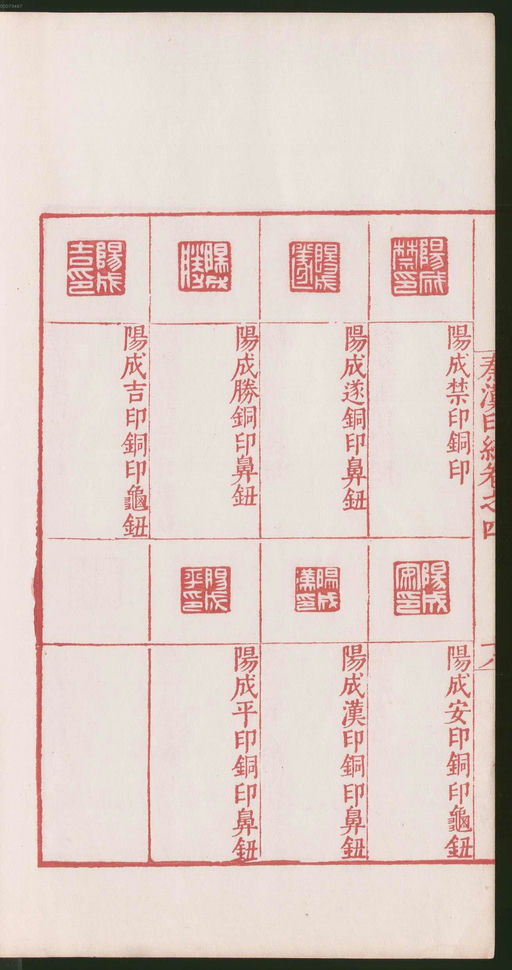 秦漢印統卷之四
陽成禁印
陽成禁印銅印
陽成遂
陽成遂銅印鼻鈕
陽成勝
陽成勝銅印鼻鈕
陽成吉印
陽成吉印銅印龜鈕
陽成安印
陽成安印銅印龜鈕
陽成漢印
陽成漢印銅印鼻鈕
陽成平印
陽成平印銅印鼻鈕